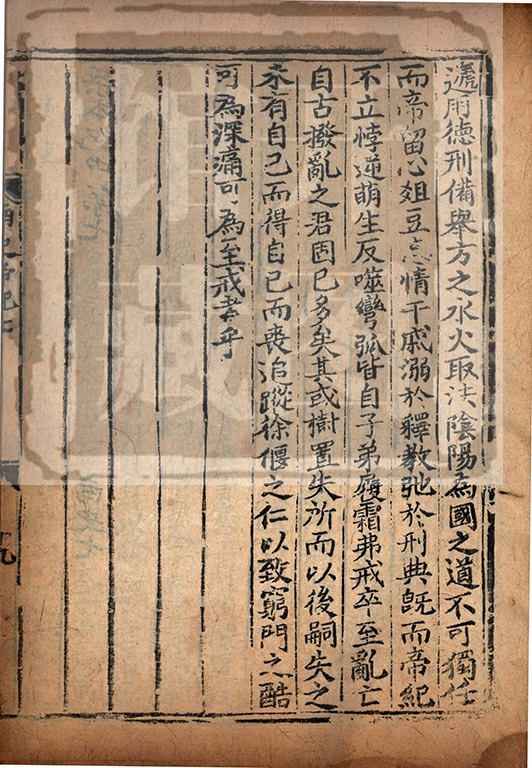 遞用德刑備舉方之水火取法陰陽為國之道不可獨任
而帝留心俎豆忘情干戚溺於釋教弛於刑典旣而帝紀
不立悖逆萌生反噬彎弧皆自子弟履霜弗戒卒至亂亡
自古撥亂之君固已多矣其或樹置失所而以後嗣失之
未有自己而得自己而喪追蹤徐偃之仁以致窮門之酷
可為深痛可為至戒者乎